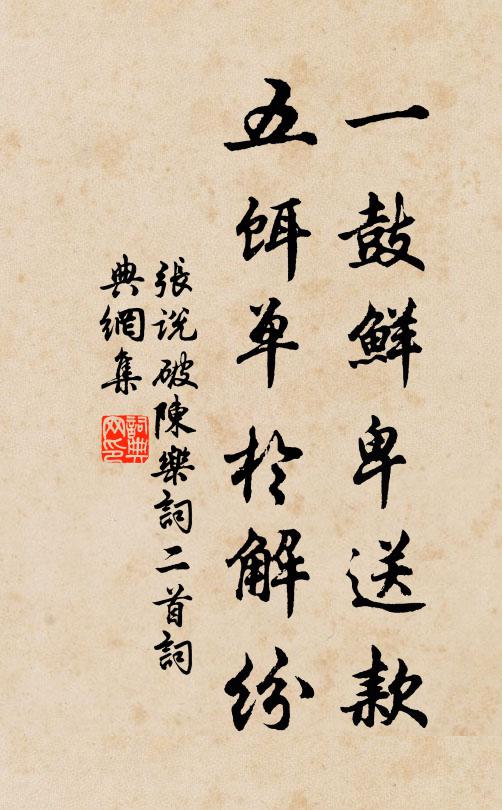 一鼓鮮卑送款
五餌單於解紛
張説破陳樂詞二首詞
典網集
詞典
网印